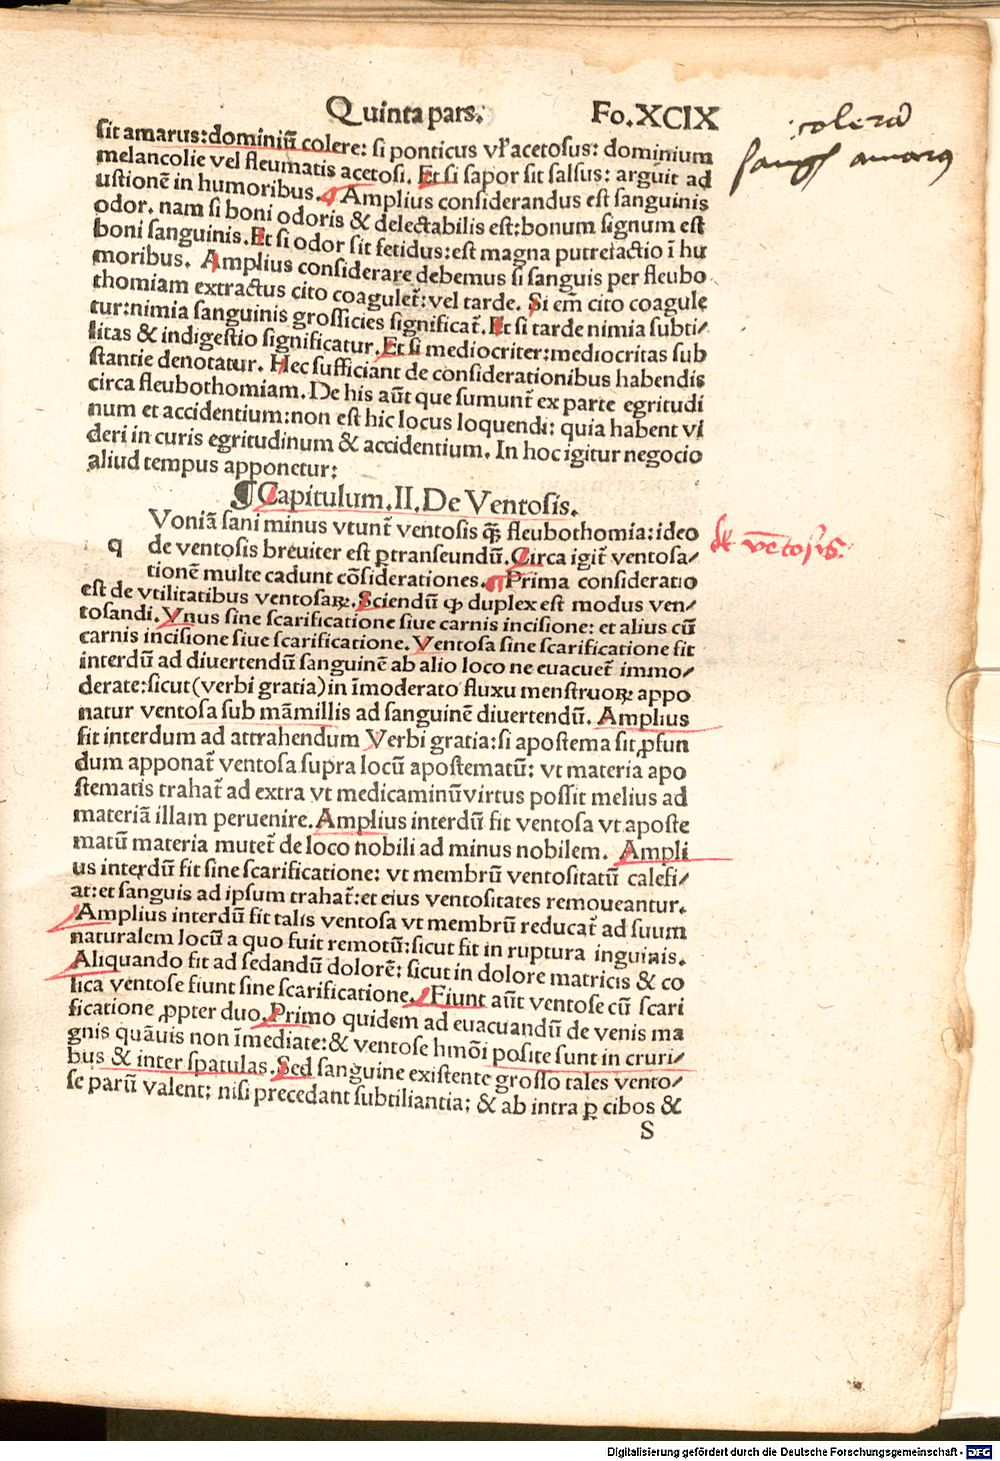 Quinta pars. Fo.XCIX
sit amarus:dominiū colere: si ponticus vl' acetosus: dominium
melancolie vel fleumatis acetosi. Et si sapor sit salsus: arguit ad
ustionē in humoribus. ¶ Amplius considerandus est sanguinis
odor. nam si boni odoris & delectabilis est:bonum signum est
boni sanguinis. Et si odor sit fetidus:est magna putrefactio ī hu
moribus. Amplius considerare debemus si sanguis per fleubo
thomiam extractus cito coagulet̄:vel tarde. Si em̄ cito coagule
tur:nimia sanguinis grossicies significat̄. Et si tarde nimia subti/
litas & indigestio significatur. Et si mediocriter:mediocritas sub
stantie denotatur. Hec sufficiant de considerationibus habendis
circa fleubothomiam. De his aūt que sumunt̄ ex parte egritudi
num et accidentium:non est hic locus loquendi: quia habent vi
deri in curis egritudinum & accidentium. In hoc igitur negocio
aliud tempus apponetur:
¶ Capitulum.II.De Ventosis.
Voniā sani minus vtunt̄ ventosis q̄ꝫ fleubothomia:ideo
q de ventosis breuiter est ꝑtranseundū. Circa igit̄ ventosa/
tionē multe cadunt cōsiderationes. ¶ Prima consideratio
est de vtilitatibus ventosaꝝ. Sciendū ꝙ duplex est modus ven/
tosandi. Vnus sine scarificatione siue carnis incisione: et alius cū
carnis incisione siue scarificatione. Ventosa sine scarificatione fit
interdū ad diuertendū sanguinē ab alio loco ne euacuet̄ immo/
derate:sicut (verbi gratia) in īmoderato fluxu menstruoꝝ appo
natur ventosa sub māmillis ad sanguinē diuertendū. Amplius
fit interdum ad attrahendum Verbi gratia:si apostema sit ꝓfun
dum apponat̄ ventosa supra locū apostematū: vt materia apo
stematis trahat̄ ad extra vt medicaminū virtus possit melius ad
materiā illam peruenire. Amplius interdū fit ventosa vt aposte
matū materia mutet̄ de loco nobili ad minus nobilem. Ampli
us interdū fit sine scarificatione: vt membrū ventositatū calefi/
at:et sanguis ad ipsum trahat̄:et eius ventositates remoueantur.
Amplius interdū fit talis ventosa vt membrū reducat̄ ad suum
naturalem locū a quo fuit remotū:sicut fit in ruptura inguinis.
Aliquando fit ad sedandū dolorē: sicut in dolore matricis & co
lica ventose fiunt sine scarificatione. Fiunt aūt ventose cū scari
ficatione ꝓpter duo. Primo quidem ad euacuandū de venis ma
gnis quāuis non īmediate:& ventose hmōi posite sunt in cruri/
bus & inter spatulas. Sed sanguine existente grosso tales vento/
se parū valent: nisi precedant subtiliantia: & ab intra ꝑ cibos &
S
colera
amarus
de vētosis
Digitalisierung gefördert durch die Deutsche Forschungsgemeinschaft - DFG